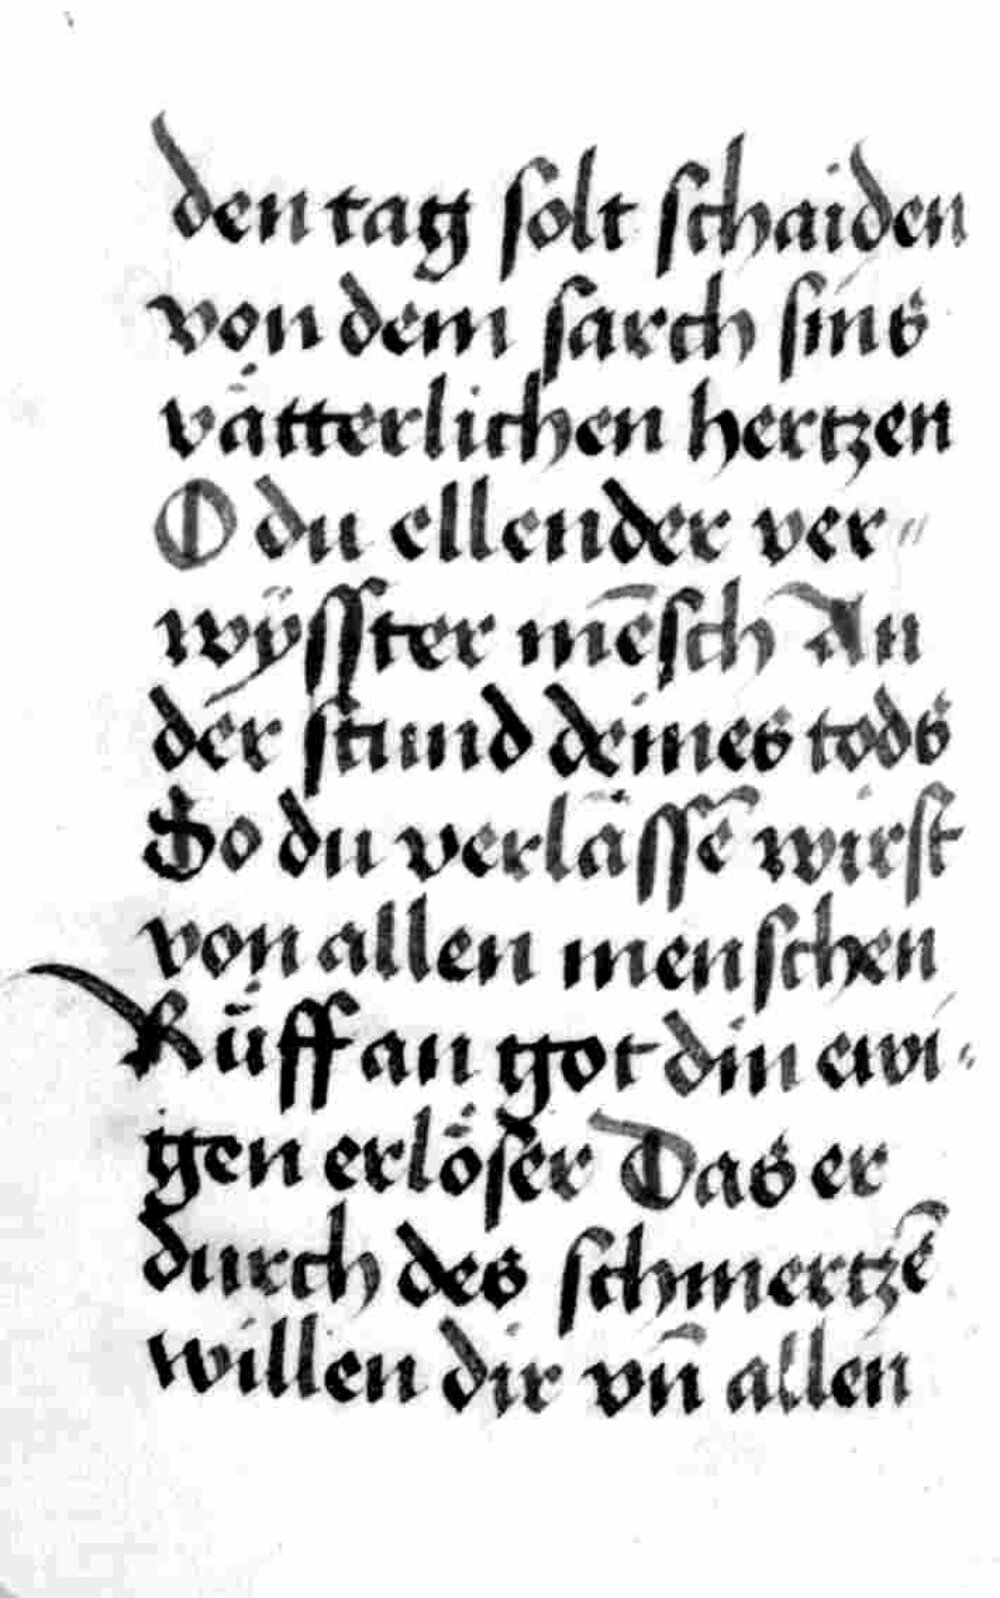 den tag ſolt ſchaiden
von dem ſarch ſins
vätterlichen hertzen
O du ellender ver⸗
wÿſſter mēſch An
der ſtund deines tods
So du verläſſē wirſt
von allen menſchen
Rüff an got din ewi⸗
gen erlöſer Das er
durch des ſchmertzē
willen dir vn̄ allen